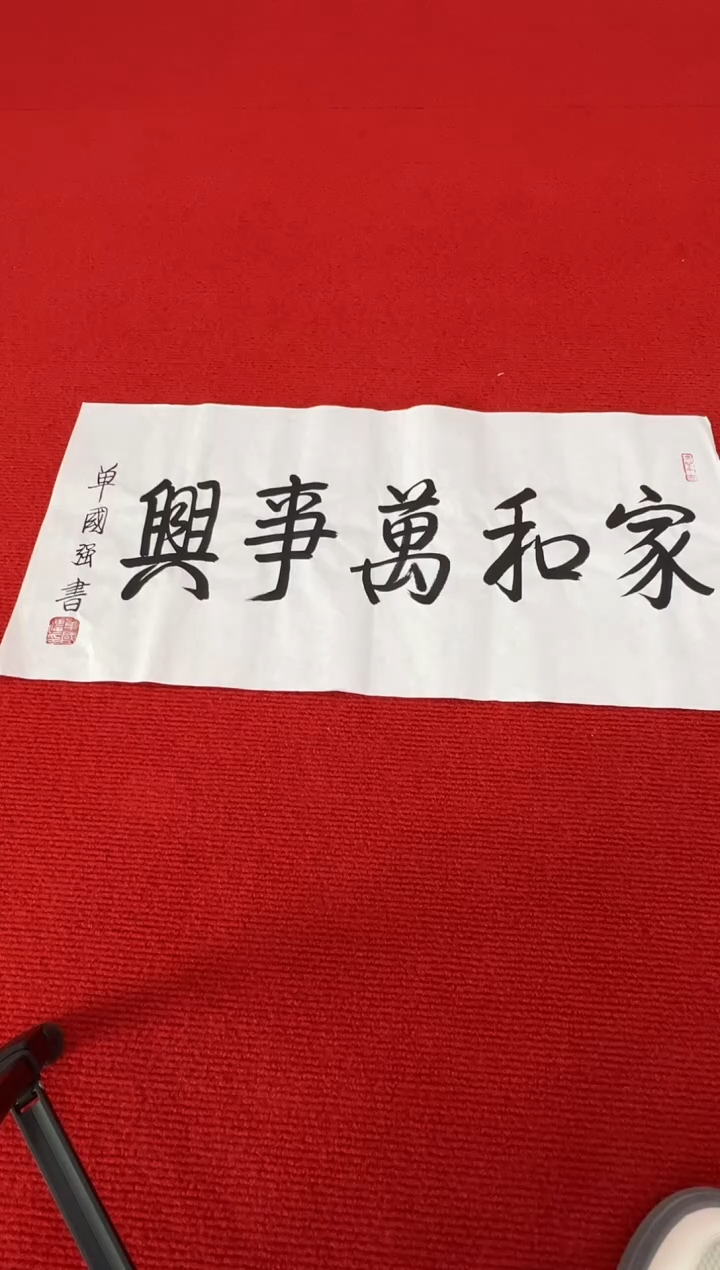 家和萬事興
单國强書